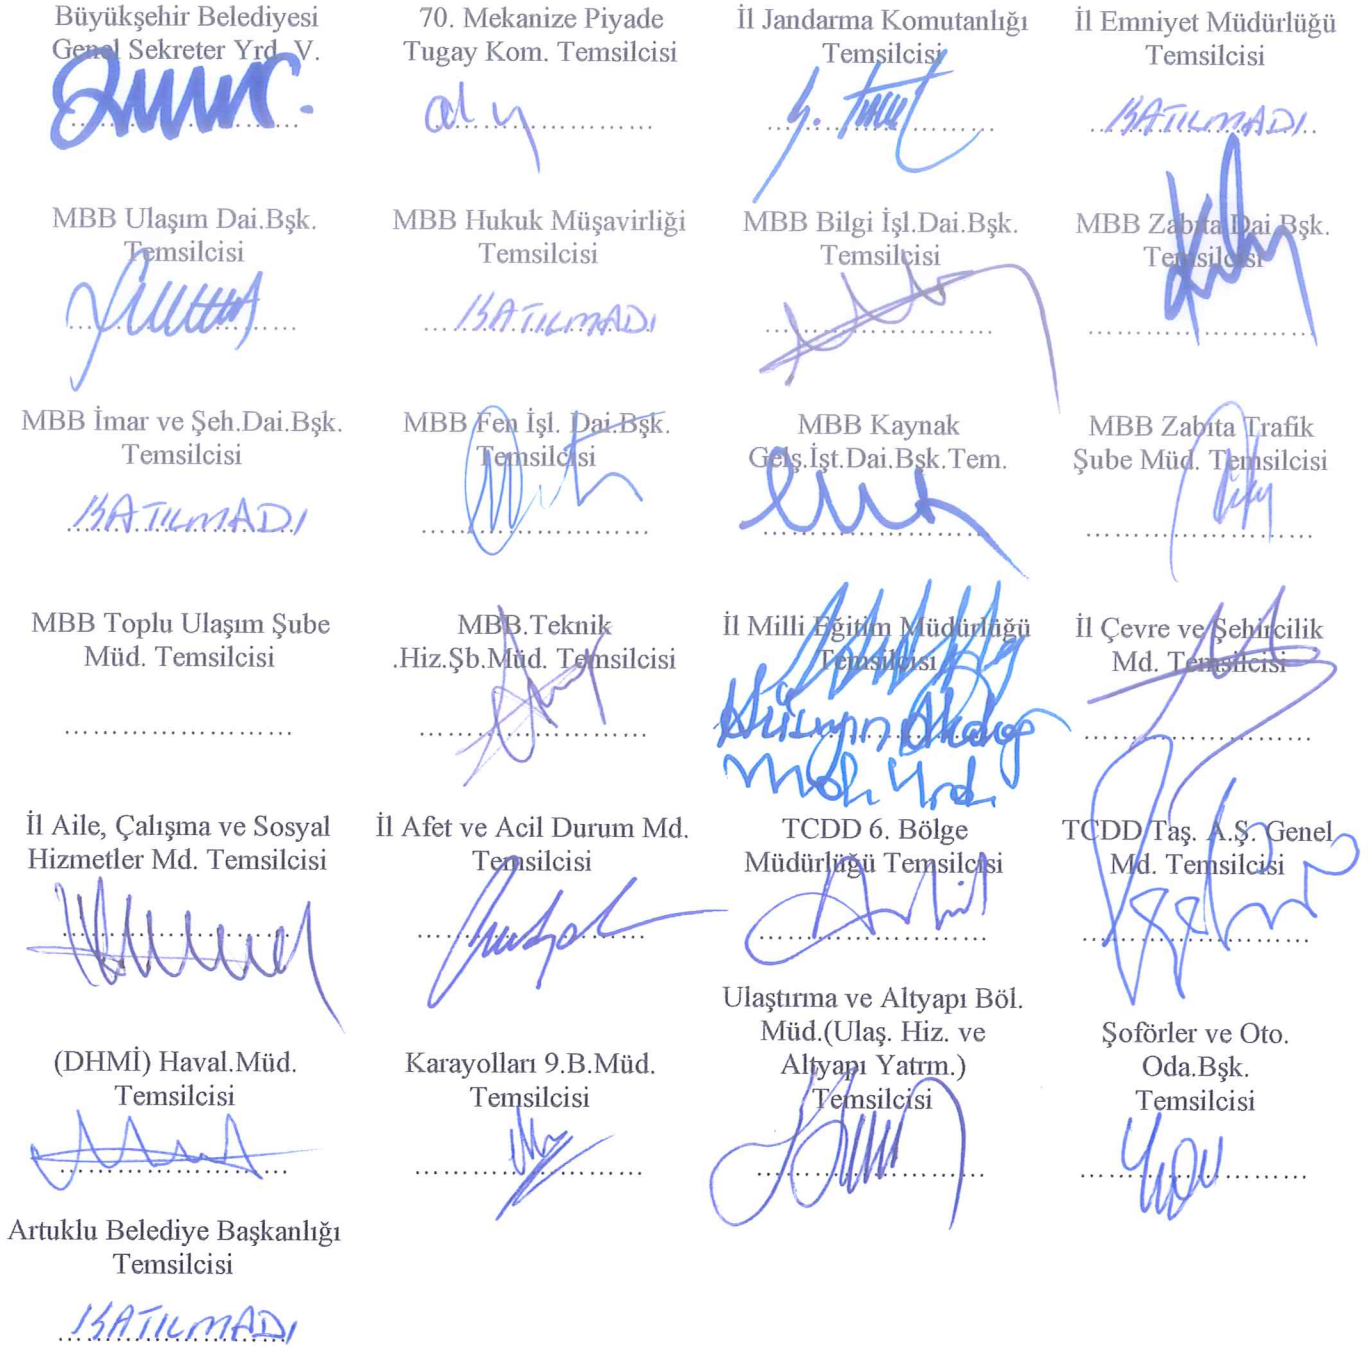 Büyükşehir Belediyesi
Genel Sekreter Yrd. V.
70. Mekanize Piyade
Tugay Kom. Temsilcisi
İl Jandarma Komutanlığı
Temsilcisi
İl Emniyet Müdürlüğü
Temsilcisi
KATILMADI
MBB Ulaşım Dai.Bşk.
Temsilcisi
MBB Hukuk Müşavirliği
Temsilcisi
KATILMADI
MBB Bilgi İşl.Dai.Bşk.
Temsilcisi
MBB Zabıta Dai Bşk.
Temsilcisi
MBB İmar ve Şeh.Dai.Bşk.
Temsilcisi
KATILMADI
MBB Fen İşl. Dai.Bşk.
Temsilcisi
MBB Kaynak
Gelş.İşt.Dai.Bşk.Tem.
MBB Zabıta Trafik
Şube Müd. Temsilcisi
MBB Toplu Ulaşım Şube
Müd. Temsilcisi
MBB.Teknik
.Hiz.Şb.Müd. Temsilcisi
İl Milli Eğitim Müdürlüğü
Temsilcisi
İl Çevre ve Şehircilik
Md. Temsilcisi
İl Aile, Çalışma ve Sosyal
Hizmetler Md. Temsilcisi
İl Afet ve Acil Durum Md.
Temsilcisi
TCDD 6. Bölge
Müdürlüğü Temsilcisi
TCDD Taş. A.Ş. Genel
Md. Temsilcisi
(DHMİ) Haval.Müd.
Temsilcisi
Karayolları 9.B.Müd.
Temsilcisi
Ulaştırma ve Altyapı Böl.
Müd.(Ulaş. Hiz. ve
Altyapı Yatrm.)
Temsilcisi
Şoförler ve Oto.
Oda.Bşk.
Temsilcisi
Artuklu Belediye Başkanlığı
Temsilcisi
KATILMADI